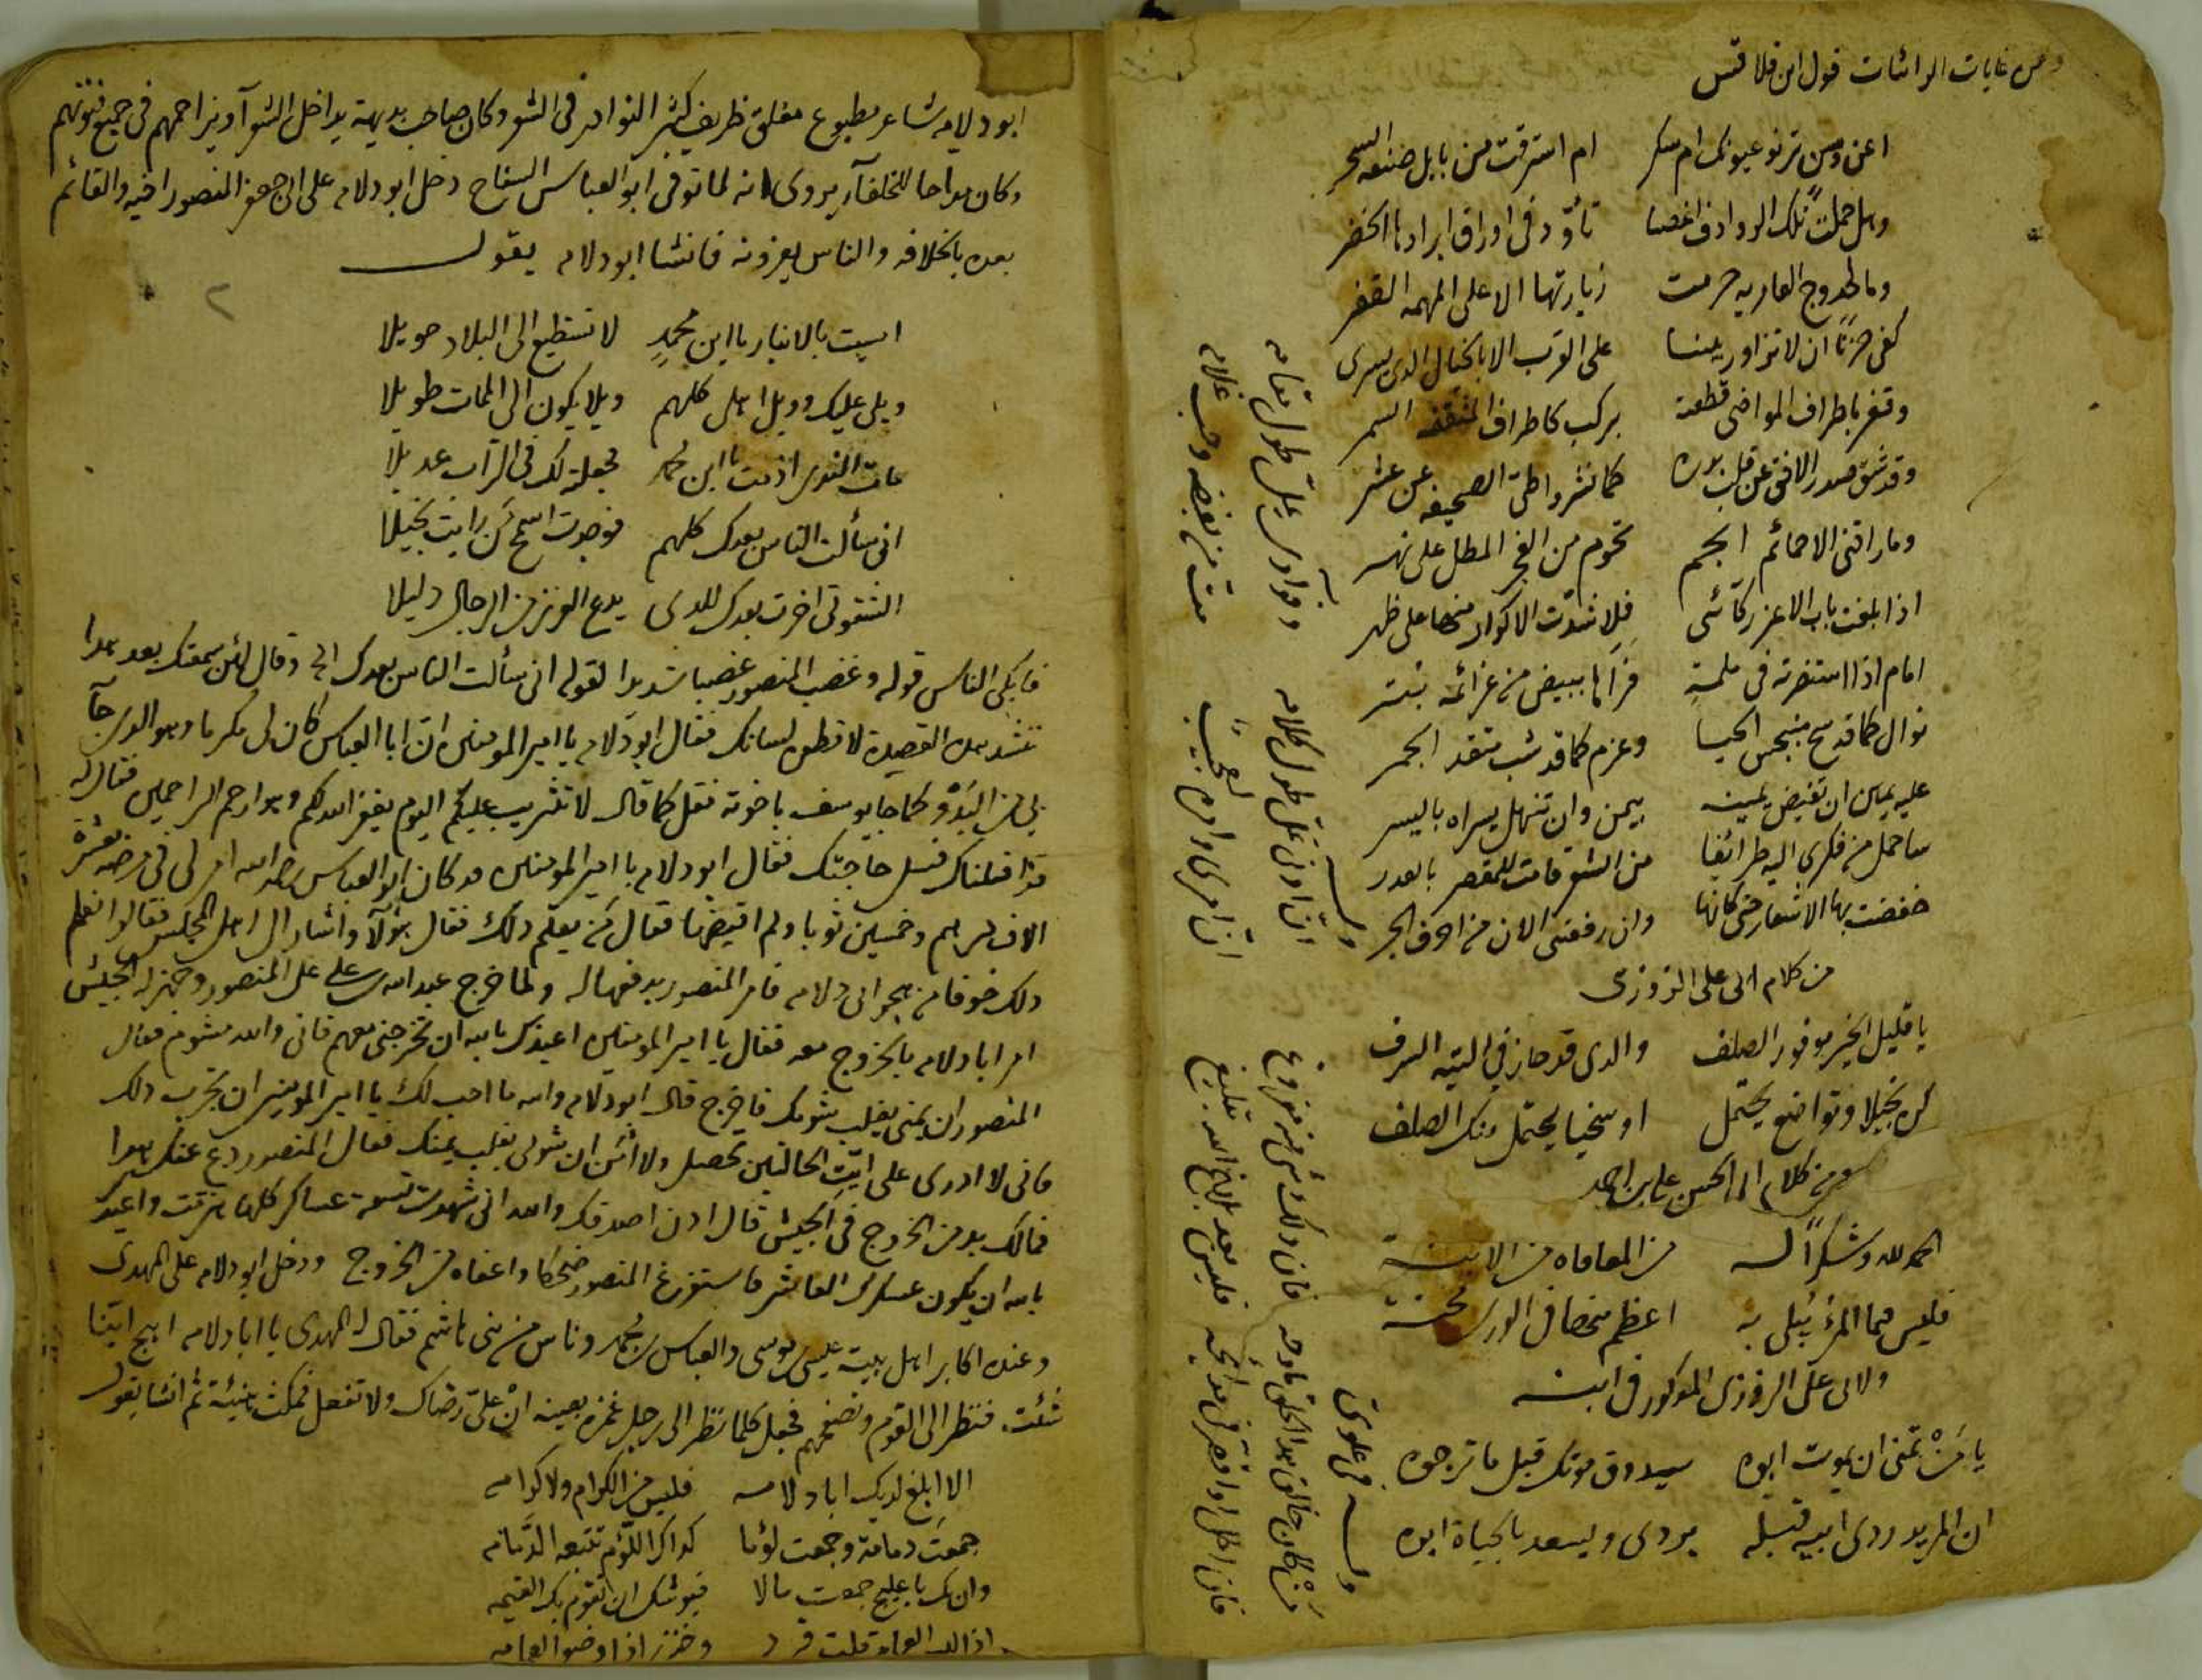 ومن غايات الرائيات قول ابن قلاقس
اعن وسن ترنو عيونك ام سكر ام استرقت من بابل صنعه السحر
وهل حملت تلك الروادف اغصنا تأود في اوراق ابرادها الخضر
وما لخدوج العاريه حرمت زيارتها الا على المهمه القفر
كفى حزنًا ان لا تزاور بيننا على القرب الا بالخيال الذي يسرى
وقفر باطراف المواضي قطعته بركب كاطراف المثقفه السمر
وقد شق صدر الافق عن قلب بدره كما نشرواطي الصحيفه عن عشر
وما راقني الا حمائم انجم تحوم من الفجر المطل على نهر
اذا بلغت باب الاعز ركائبي فلا شدت الاكوار منها على ظهر
امام اذا استنصرته في ملمة فراها ببيض من عزائمه بتر
نوال كما قد سح منبجس الحيا وعزم كما قد شب متقد الجمر
عليه يمين ان تفيض يمينه بيمن وان تنهل يسراه باليسر
ساحمل من فكري اليه طرائفا من الشعر قامت للمقصر بالعذر
خفضت بها الاشعار حتى كانها وان رفعتني الان من احرف الجر
من كلام ابي على الزوزني
يا قليل الخير موفور الصلف والذي قد حاز في التيه السرف
كن بخيلا وتواضع يحتمل او سخيا يحتمل منك الصلف
ومن كلام ابى الحسن على بن احمد
الحمد لله وشكرًا له من المعافاه من الابنة
فليس مما المرء يبلى به اعظم منها في الورى محنة
ولابى على الزوزني المذكور في ابنه
يا من تمنى ان يموت ابوه سيذوق موتك قبل ما ترجوه
ان المريد ردى ابيه قبله يردى ويسعد بالحياة ابوه
ان اوفى على طول كلامه
ان امرى وارم لعجيب
وله في علوي
من كان خالق هذا الخلق مادحه فان ذلك شي منه مفروغ
فان اطل او اقصر في مدائحه فليس بعد بلاغ الله تبليغ
ابو دلامه شاعر مطبوع مفلق ظريف كثير النوادر في الشعر وكان صاحب بديهة يداخل الشعرآ ويزاحمهم في جميع فنونهم
وكان مداحا للخلفآ يروى انه لما توفى ابو العباس السفاح دخل ابو دلامه على ابى جعفر المنصور اخيه والقائم
بعده بالخلافه والناس يعزونه فانشا ابو دلامه يقول
امسيت بالانبار يا ابن محمدٍ لا تستطيع الى البلاد حويلا
ويلى عليك وويل اهلى كلهم ويلا يكون الى الممات طويلا
مات الندى اذ مت يا ابن محمد فجعلته لك في التراب عديلا
انى سألت الناس بعدك كلهم فوجدت اسمح من رايت بخيلا
الشقوتى اخرت بعدك للذى يدع العزيز من الرجال ذليلا
فابكى الناس قوله وغضب المنصور غضبا شديدا لقوله انى سألت الناس بعدك الخ وقال لئن سمعتك بعد هذا
تنشد هذه القصيدة لاقطعن لسانك فقال ابو دلامه يا امير المومنين ان ابا العباس كان لى مكرما وهو الذي جآ
بى من البدو كما جا يوسف باخوته فقل كما قال لا تثريب عليكم اليوم يغفر الله لكم وهو ارحم الراحمين فقال له
قد اقلناك فسل حاجتك فقال ابو دلامه يا امير المومنين قد كان ابو العباس رحمه الله امر لى في مرضه بعشرة
الاف درهم وخمسين ثوبا ولم اقبضها فقال من يعلم ذلك فقال هؤلآ واشار الى اهل المجلس فقالوا نعلم
ذلك خوفا من هجو ابى دلامه فامر المنصور بدفعها له ولما خرج عبد الله بن على على المنصور وجهز له الجيش
امر ابا دلامه بالخروج معه فقال يا امير المومنين اعيذك بالله ان تخرجنى معهم فاني والله مشوم فقال
المنصور ان يمنى يغلب شومك فاخرج قال ابو دلامه والله ما احب لك يا امير المومنين ان تجرب ذلك
فانى لا ادرى على ايّت الحالتين تحصل ولا آمن ان شومى يغلب يمنك فقال المنصور دع عنك هذا
فمالك بد من الخروج في الجيش قال اذن اصدقك والله انى شهدت تسعة عساكر كلها هزمت واعيذ
بالله ان يكون عسكرك العاشر فاستغرغ المنصور ضحكا واعفاه من الخروج ودخل ابو دلامه على المهدى
وعنده اكابر اهل بيته عيسى بن موسى والعباس بن محمد وناس من بنى هاشم فقال له المهدى يا ابا دلامه اهج اينا
شئت فنظر الى القوم وتصفحهم فجعل كلما نظر الى رجل غمزه بعينه ان على رضاك ولا تفعل فمكث هنيئة ثم انشا يقول
الا ابلغ لديك ابا دلامه فليس من الكرام ولا كرامه
جمعت دمامة وجمعت لؤما كذاك اللؤم تتبعه الدمامه
وان تك يا عليج جمعت مالا فيوشك ان تقوم بك القيمه
اذا لبس العمامة قلت قرد وخنزير اذا وضع العمامه